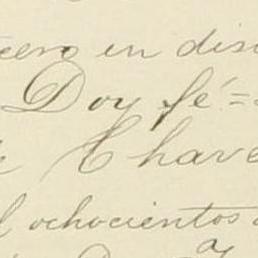 cero en dis
Doy fé =
Chave
l ochocientos